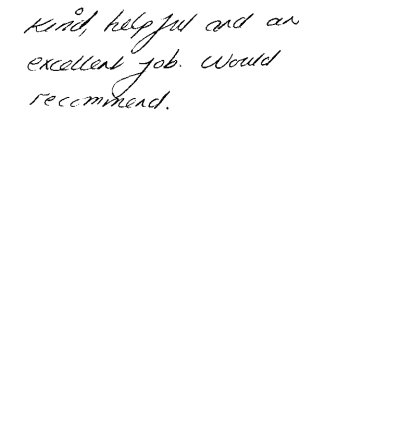 Kind, helpful and an
excellent job. Would
recommend.